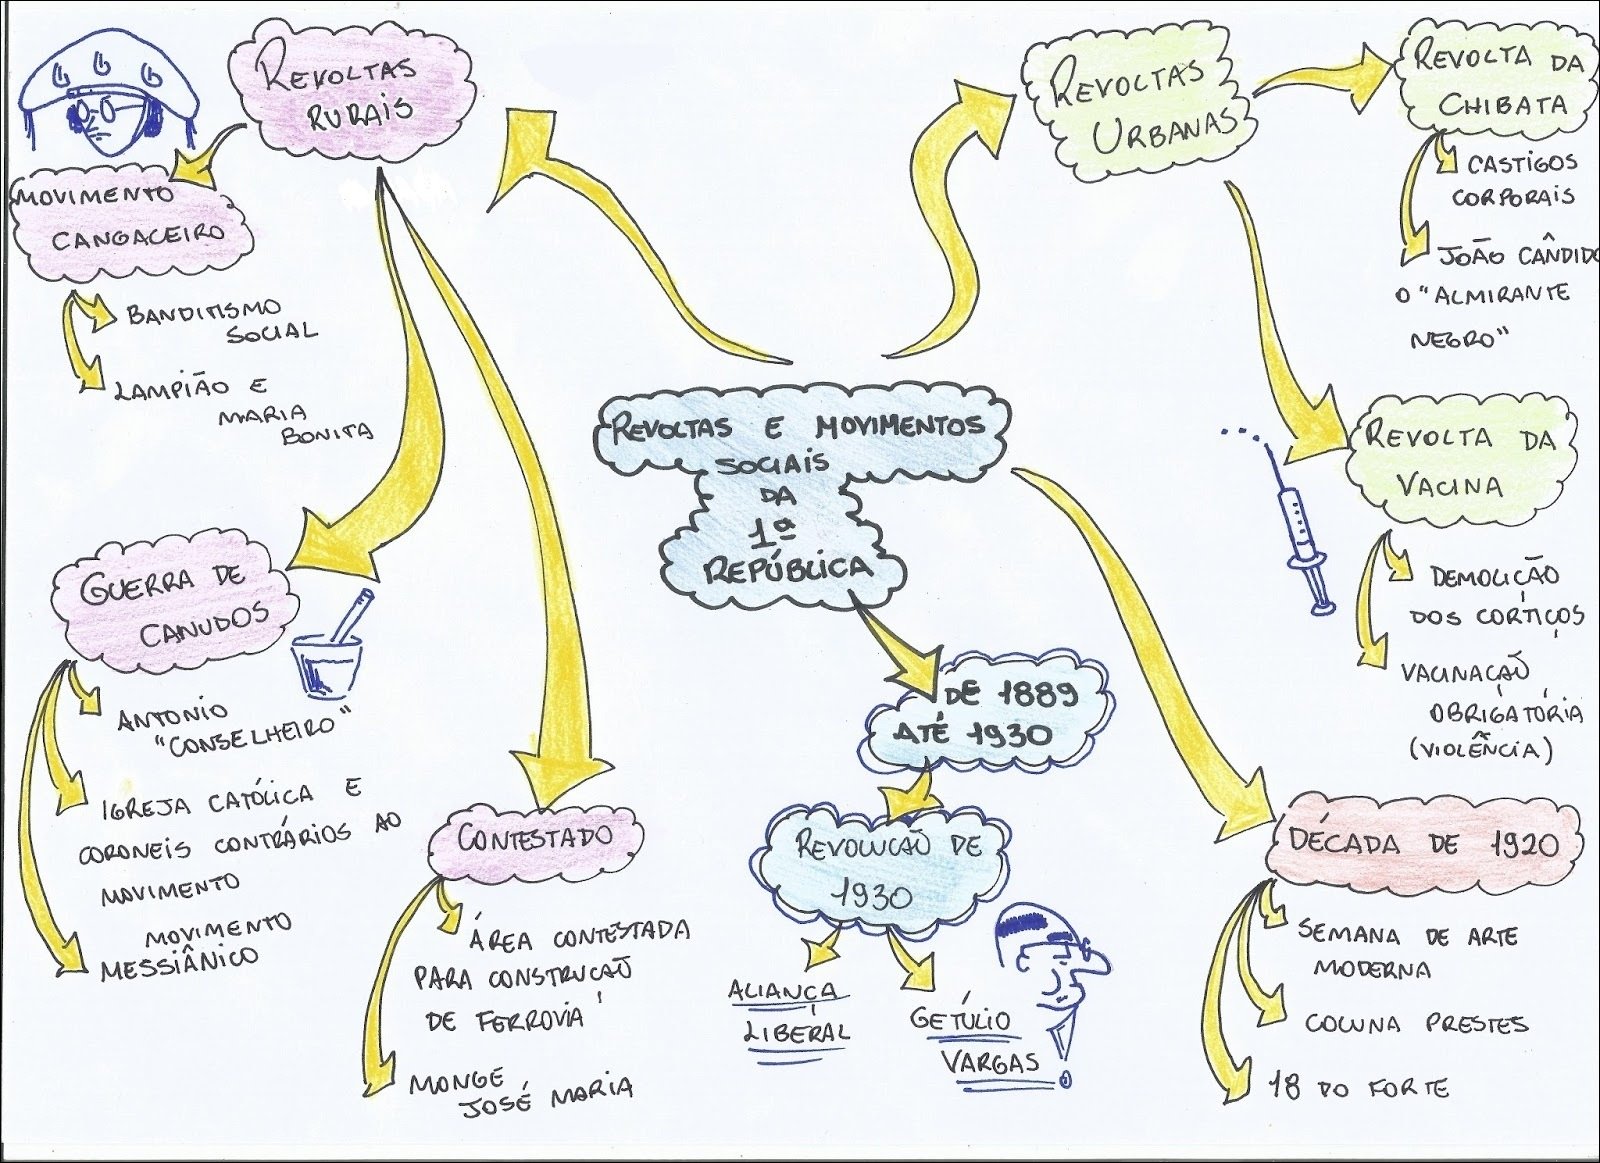 REVOLTAS E MOVIMENTOS
SOCIAIS
DA
1ª
REPÚBLICA
REVOLTAS
RURAIS
MOVIMENTO
CANGACEIRO
BANDITISMO
SOCIAL
LAMPIÃO E
MARIA
BONITA
GUERRA DE
CANUDOS
ANTONIO
"CONSELHEIRO"
IGREJA CATÓLICA E
CORONEIS CONTRÁRIOS AO
MOVIMENTO
MOVIMENTO
MESSIÂNICO
CONTESTADO
ÁREA CONTESTADA
PARA CONSTRUÇÃO
DE FERROVIA
MONGE
JOSÉ MARIA
DE 1889
ATÉ 1930
REVOLUÇÃO DE
1930
ALIANÇA
LIBERAL
GETÚLIO
VARGAS
REVOLTAS
URBANAS
REVOLTA DA
CHIBATA
CASTIGOS
CORPORAIS
JOÃO CÂNDIDO
O "ALMIRANTE
NEGRO"
REVOLTA DA
VACINA
DEMOLIÇÃO
DOS CORTIÇOS
VACINAÇÃO
OBRIGATÓRIA
(VIOLÊNCIA)
DÉCADA DE 1920
SEMANA DE ARTE
MODERNA
COLUNA PRESTES
18 DO FORTE